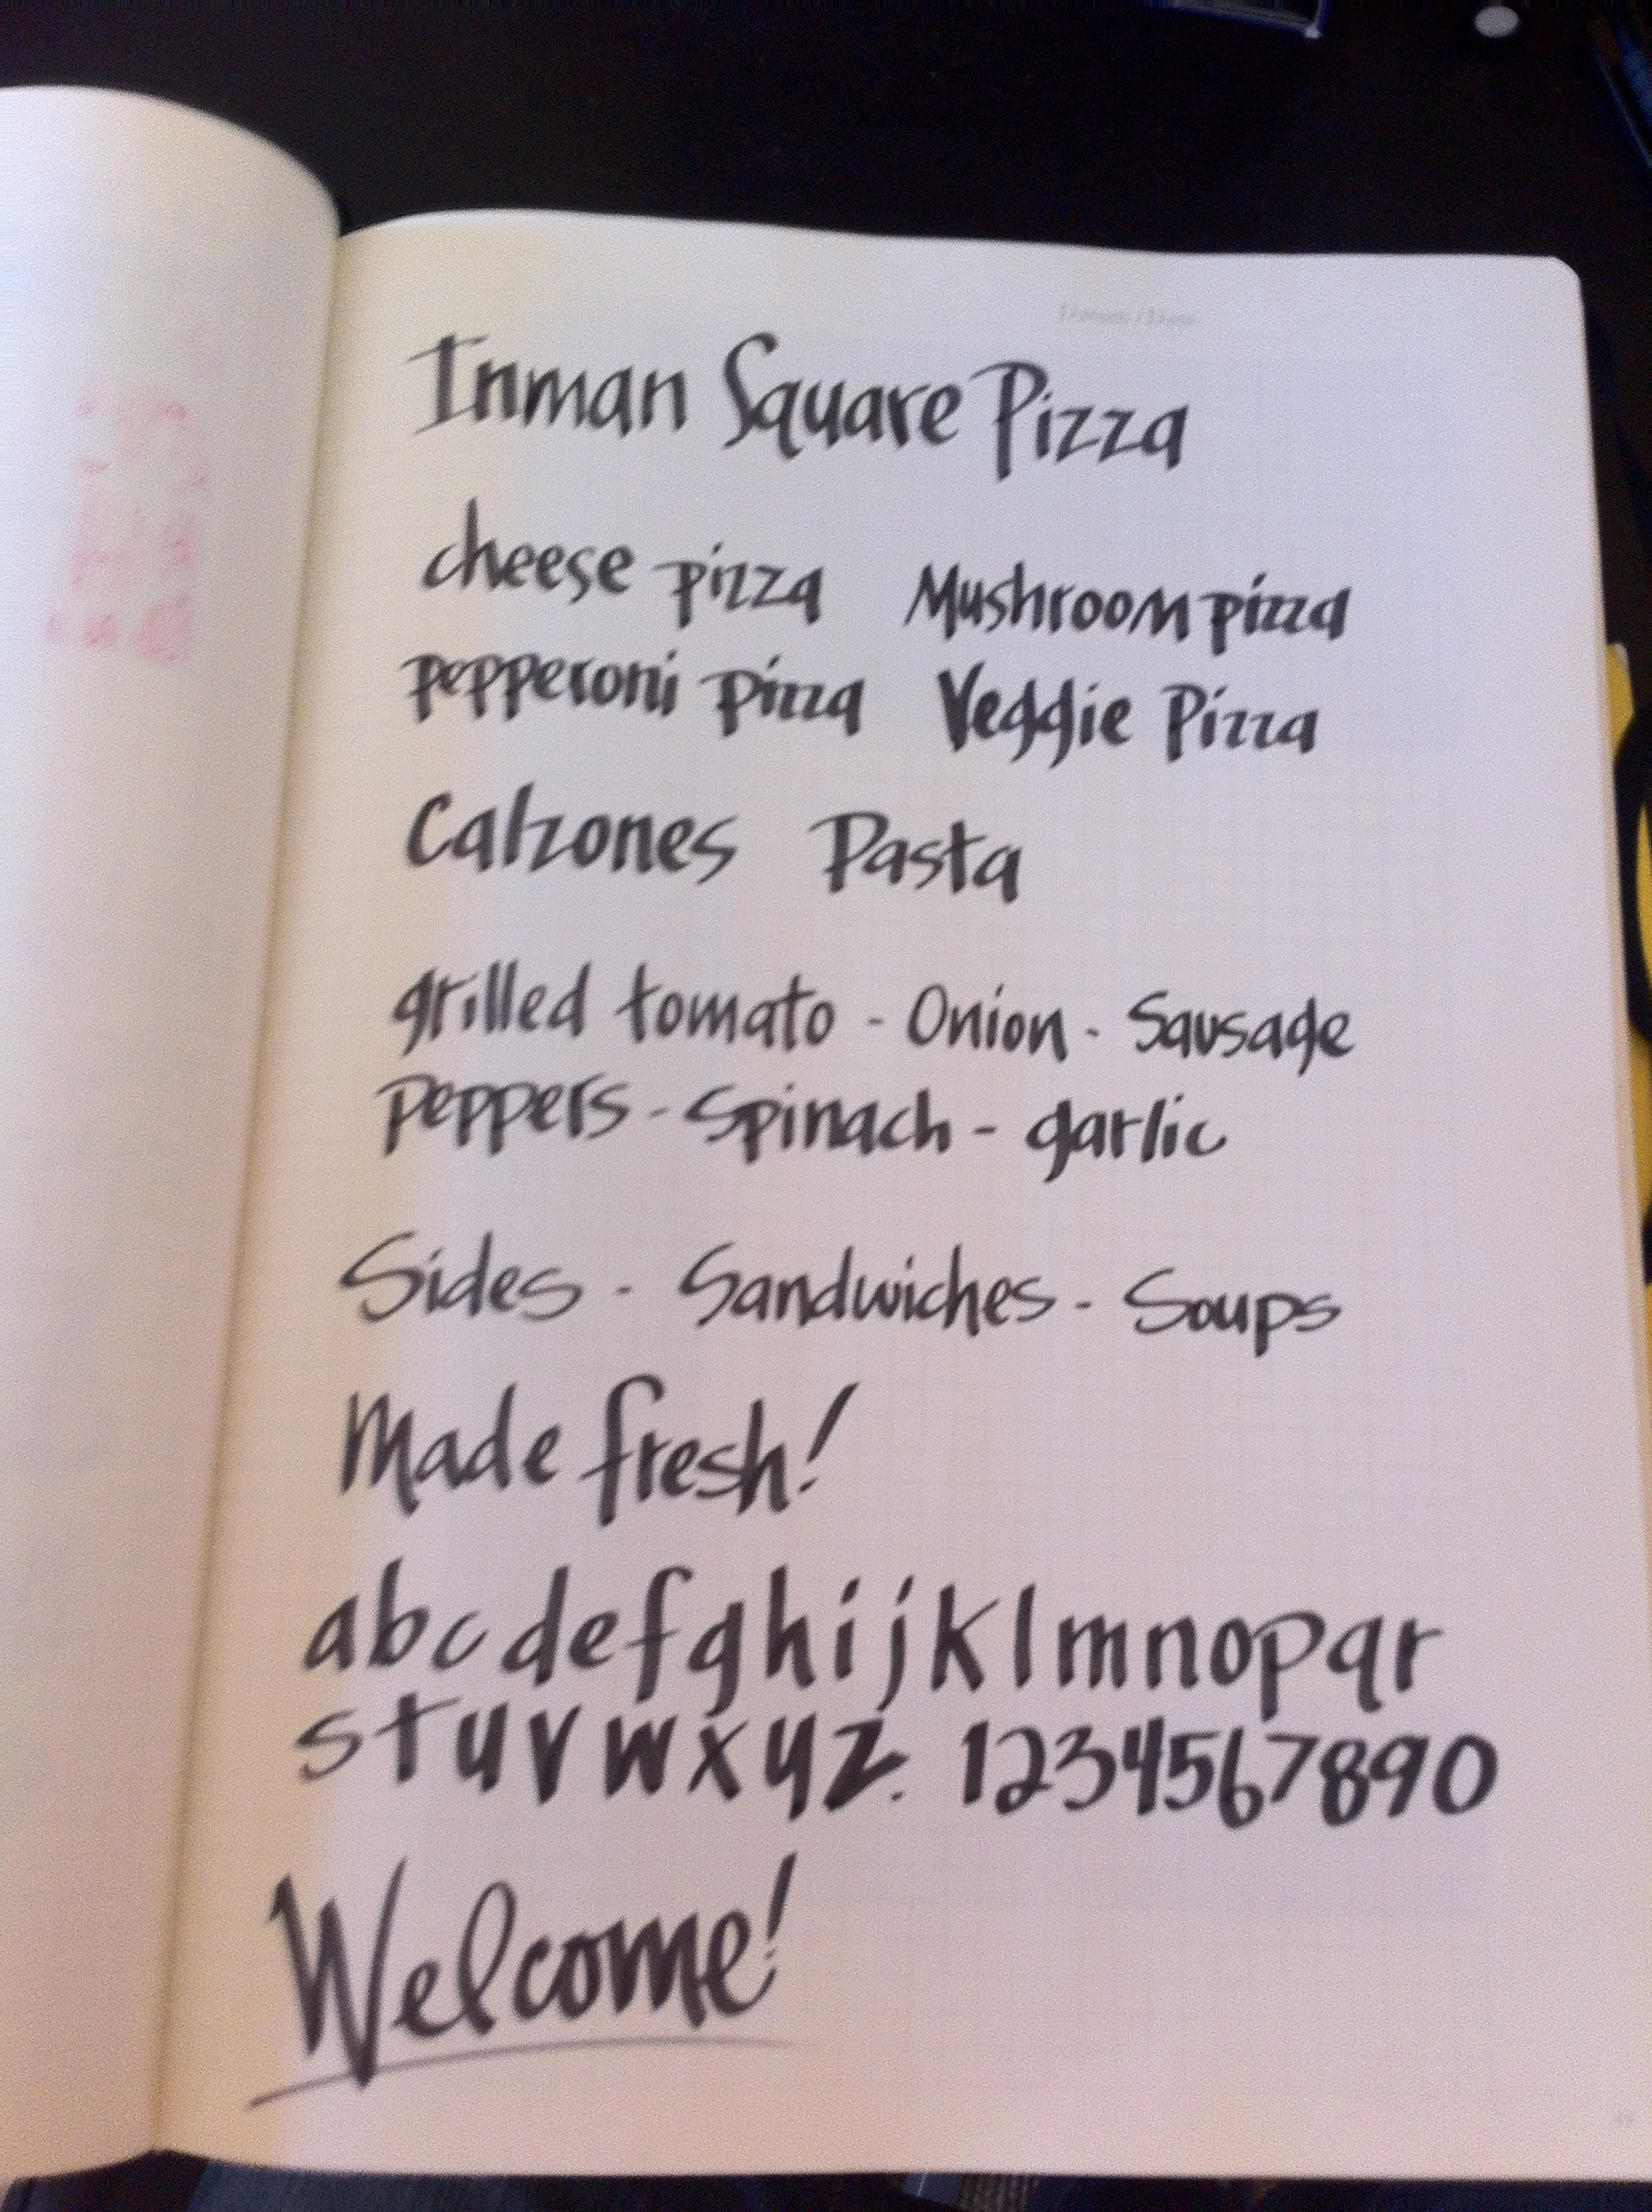 Inman Square Pizza
cheese pizza Mushroom pizza
pepperoni pizza Veggie Pizza
Calzones Pasta
grilled tomato - Onion - Sausage
peppers - Spinach - garlic
Sides - Sandwiches - Soups
Made fresh!
abcdefghijklmnopqr
stuvwxyz. 1234567890
Welcome!